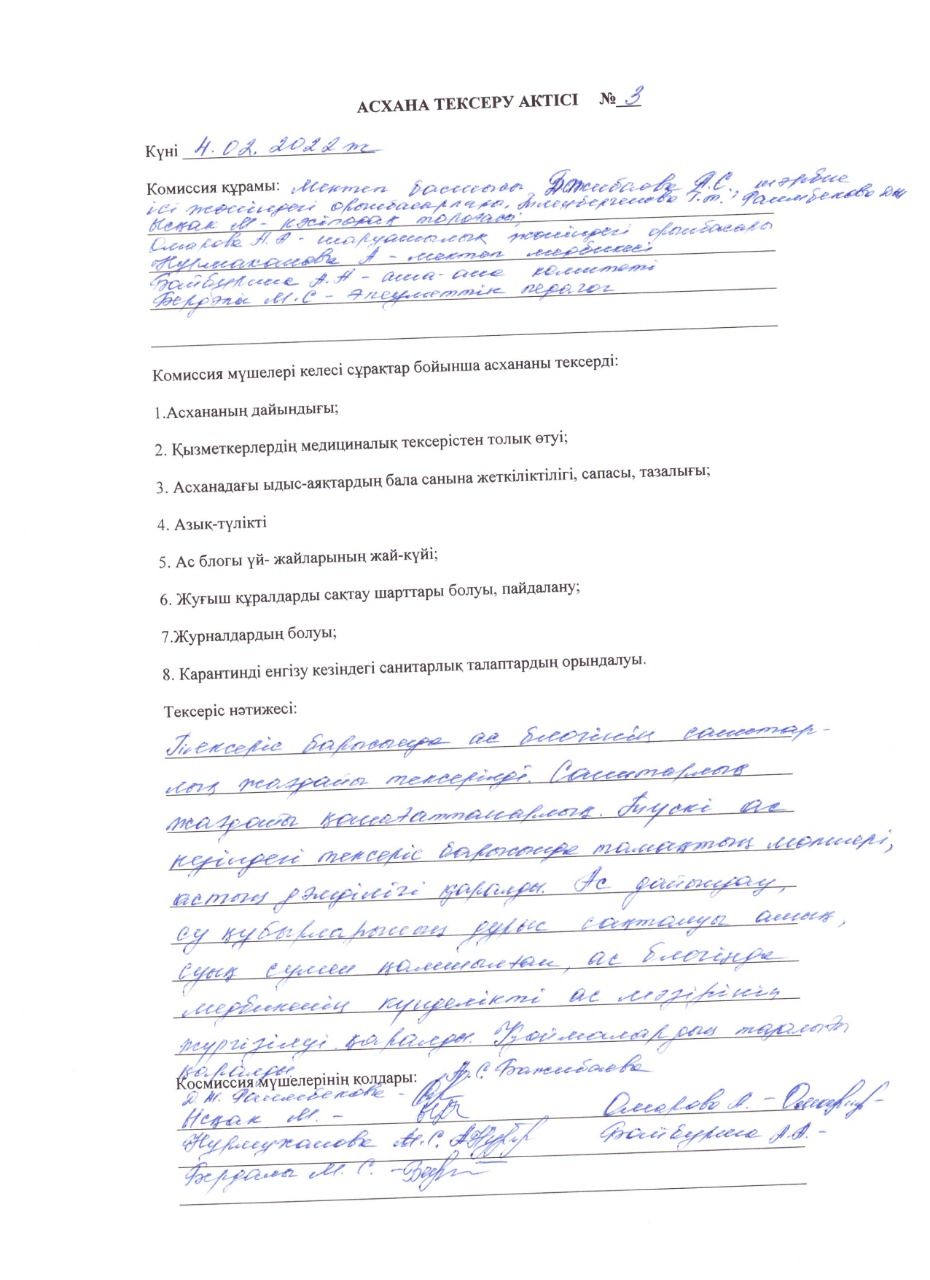 АСХАНА ТЕКСЕРУ АКТІСІ № 3
Күні 4.02.2022ж
Комиссия құрамы: Мектеп басшысы Бажибаева А.С., тәрбие
ісі жөніндегі орынбасарлары, Тлеубергенова Г.т., Фаимбекова ДЖ
Исқак М - кәсіподақ төрағасы,
Омарова А.А - шаруашылық жөніндегі орынбасары
Нурмаханова А - мектеп медбикесі
Байбурина А.А - ата-ана комитеті
Бердалы М.С - әлеуметтік педагог
Комиссия мүшелері келесі сұрақтар бойынша асхананы тексерді:
1.Асхананың дайындығы;
2. Қызметкерлердің медициналық тексерістен толық өтуі;
3. Асханадағы ыдыс-аяқтардың бала санына жеткіліктілігі, сапасы, тазалығы;
4. Азық-түлікті
5. Ас блогы үй- жайларының жай-күйі;
6. Жуғыш құралдарды сақтау шарттары болуы, пайдалану;
7.Журналдардың болуы;
8. Карантинді енгізу кезіндегі санитарлық талаптардың орындалуы.
Тексеріс нәтижесі:
Тексеріс барысында ас блогінің санитар-
лық жағдайы тексерінді. Санитарлық
жағдайы қанағаттанарлық. Түскі ас
кезіндегі тексеріс барысында тамақтың мөлшері,
астың дәмділігі қаралды. Ас дайындау,
су құбырларының дұрыс сақталуы ыстық,
суық сумен қамтылған, ас блогінде
медбикенің күнделікті ас мәзірінің
жүргізілуі қаралды. Қоймалардың тазалығы
қаралды
Космиссия мүшелерінің қолдары: А.С. Бажибаева
ДЖ. Фаимбекова -
Исқак М. - Омарова А. -
Нурмуханова М.С. Байбурина А.А. -
Бердалы М. С. -